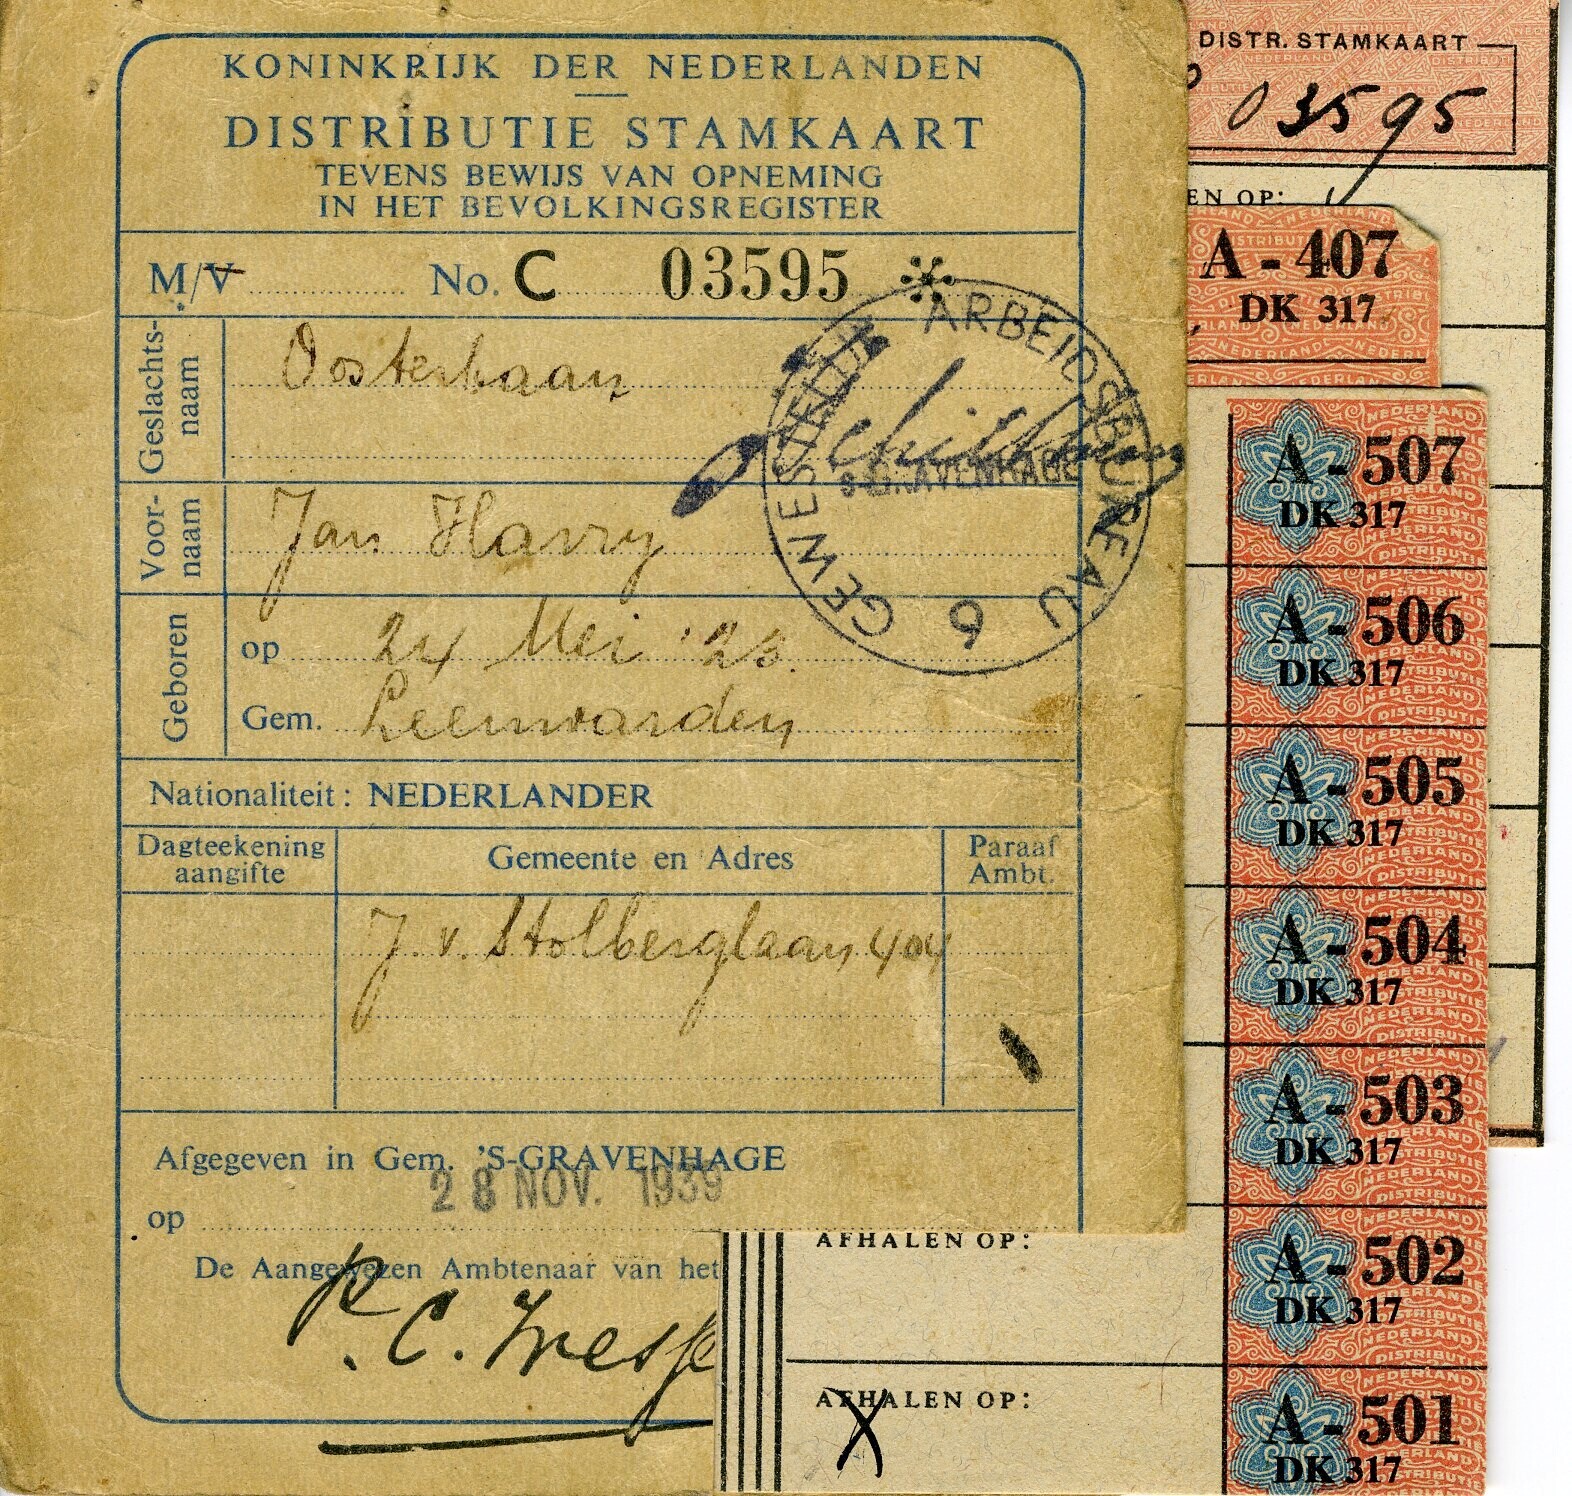 KONINKRIJK DER NEDERLANDEN
DISTRIBUTIE STAMKAART
TEVENS BEWIJS VAN OPNEMING
IN HET BEVOLKINGSREGISTER
M/V No. C 03595 *
Geslachts-
naam
Oosterbaan
Voor-
naam
Jan Harry
Geboren
op 24 Mei '23.
Gem. Leeuwarden
Nationaliteit: NEDERLANDER
Dagteekening
aangifte
Gemeente en Adres
Paraaf
Ambt.
J. v. Stolberglaan 404
Afgegeven in Gem. 'S-GRAVENHAGE
28 NOV. 1939
op
De Aangewezen Ambtenaar van het
GEWESTELIJK ARBEIDSBUREAU
'S-GRAVENHAGE
6
DISTR. STAMKAART
03595
EN OP:
A - 407
DK 317
A - 507
DK 317
A - 506
DK 317
A - 505
DK 317
A - 504
DK 317
A - 503
DK 317
AFHALEN OP:
A - 502
DK 317
AFHALEN OP:
X
A - 501
DK 317